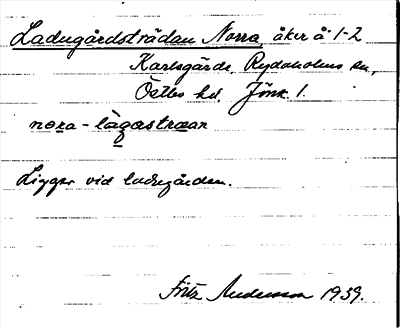 Ladugårdsträdan Norra, åker å 1-2
Karlsgärde, Rydaholms sn,
Östbo hd. Jönk. l.
nora - lagastraan
Ligger vid ladugården.
Fritz Andersson 1939.